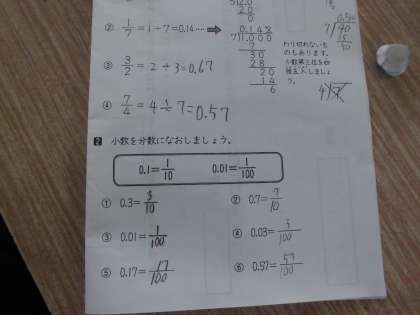 ② 1/7 = 1÷7=0.14… ➡
0.142
7)1.000
7
30
28
20
14
6
わり切れないも
のもあります。
③ 3/2 = 2 ÷3=0.67
④ 7/4 = 4÷7=0.57
2 小数を分数になおしましょう。
0.1=1/10 0.01=1/100
① 0.3=3/10 ② 0.7=7/10
③ 0.01=1/100 ④ 0.03=3/100
⑤ 0.17=17/100 ⑥ 0.57=57/100